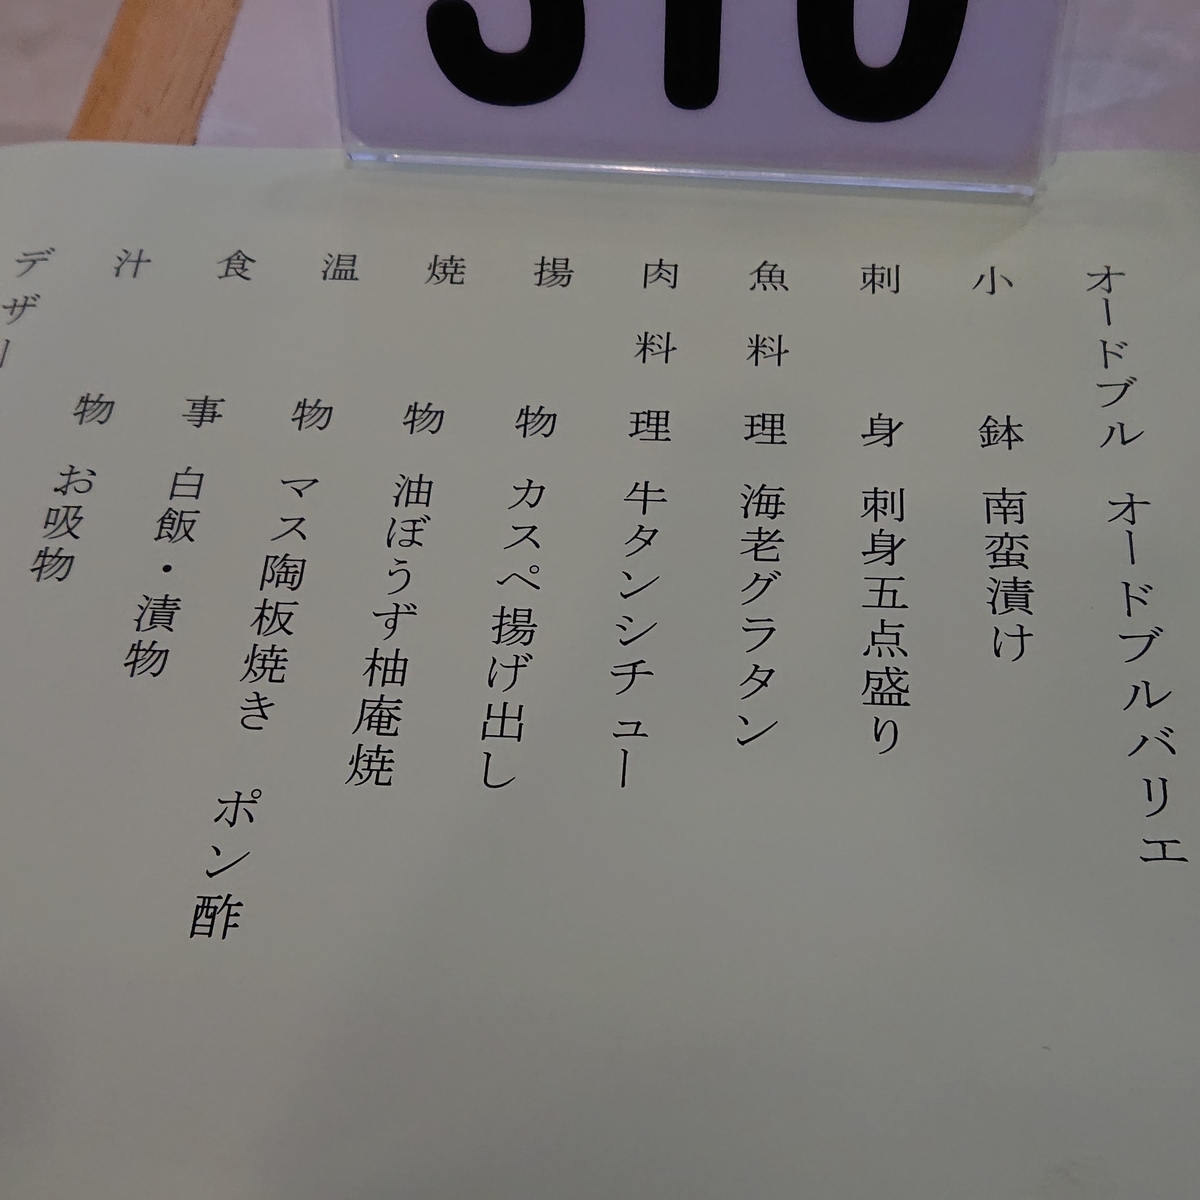 オードブル オードブルバリエ
小鉢 南蛮漬け
刺身 刺身五点盛り
魚料理 海老グラタン
肉料理 牛タンシチュー
揚物 カスペ揚げ出し
焼物 油ぼうず柚庵焼
温物 マス陶板焼き ポン酢
食事 白飯・漬物
汁物 お吸物
デザー